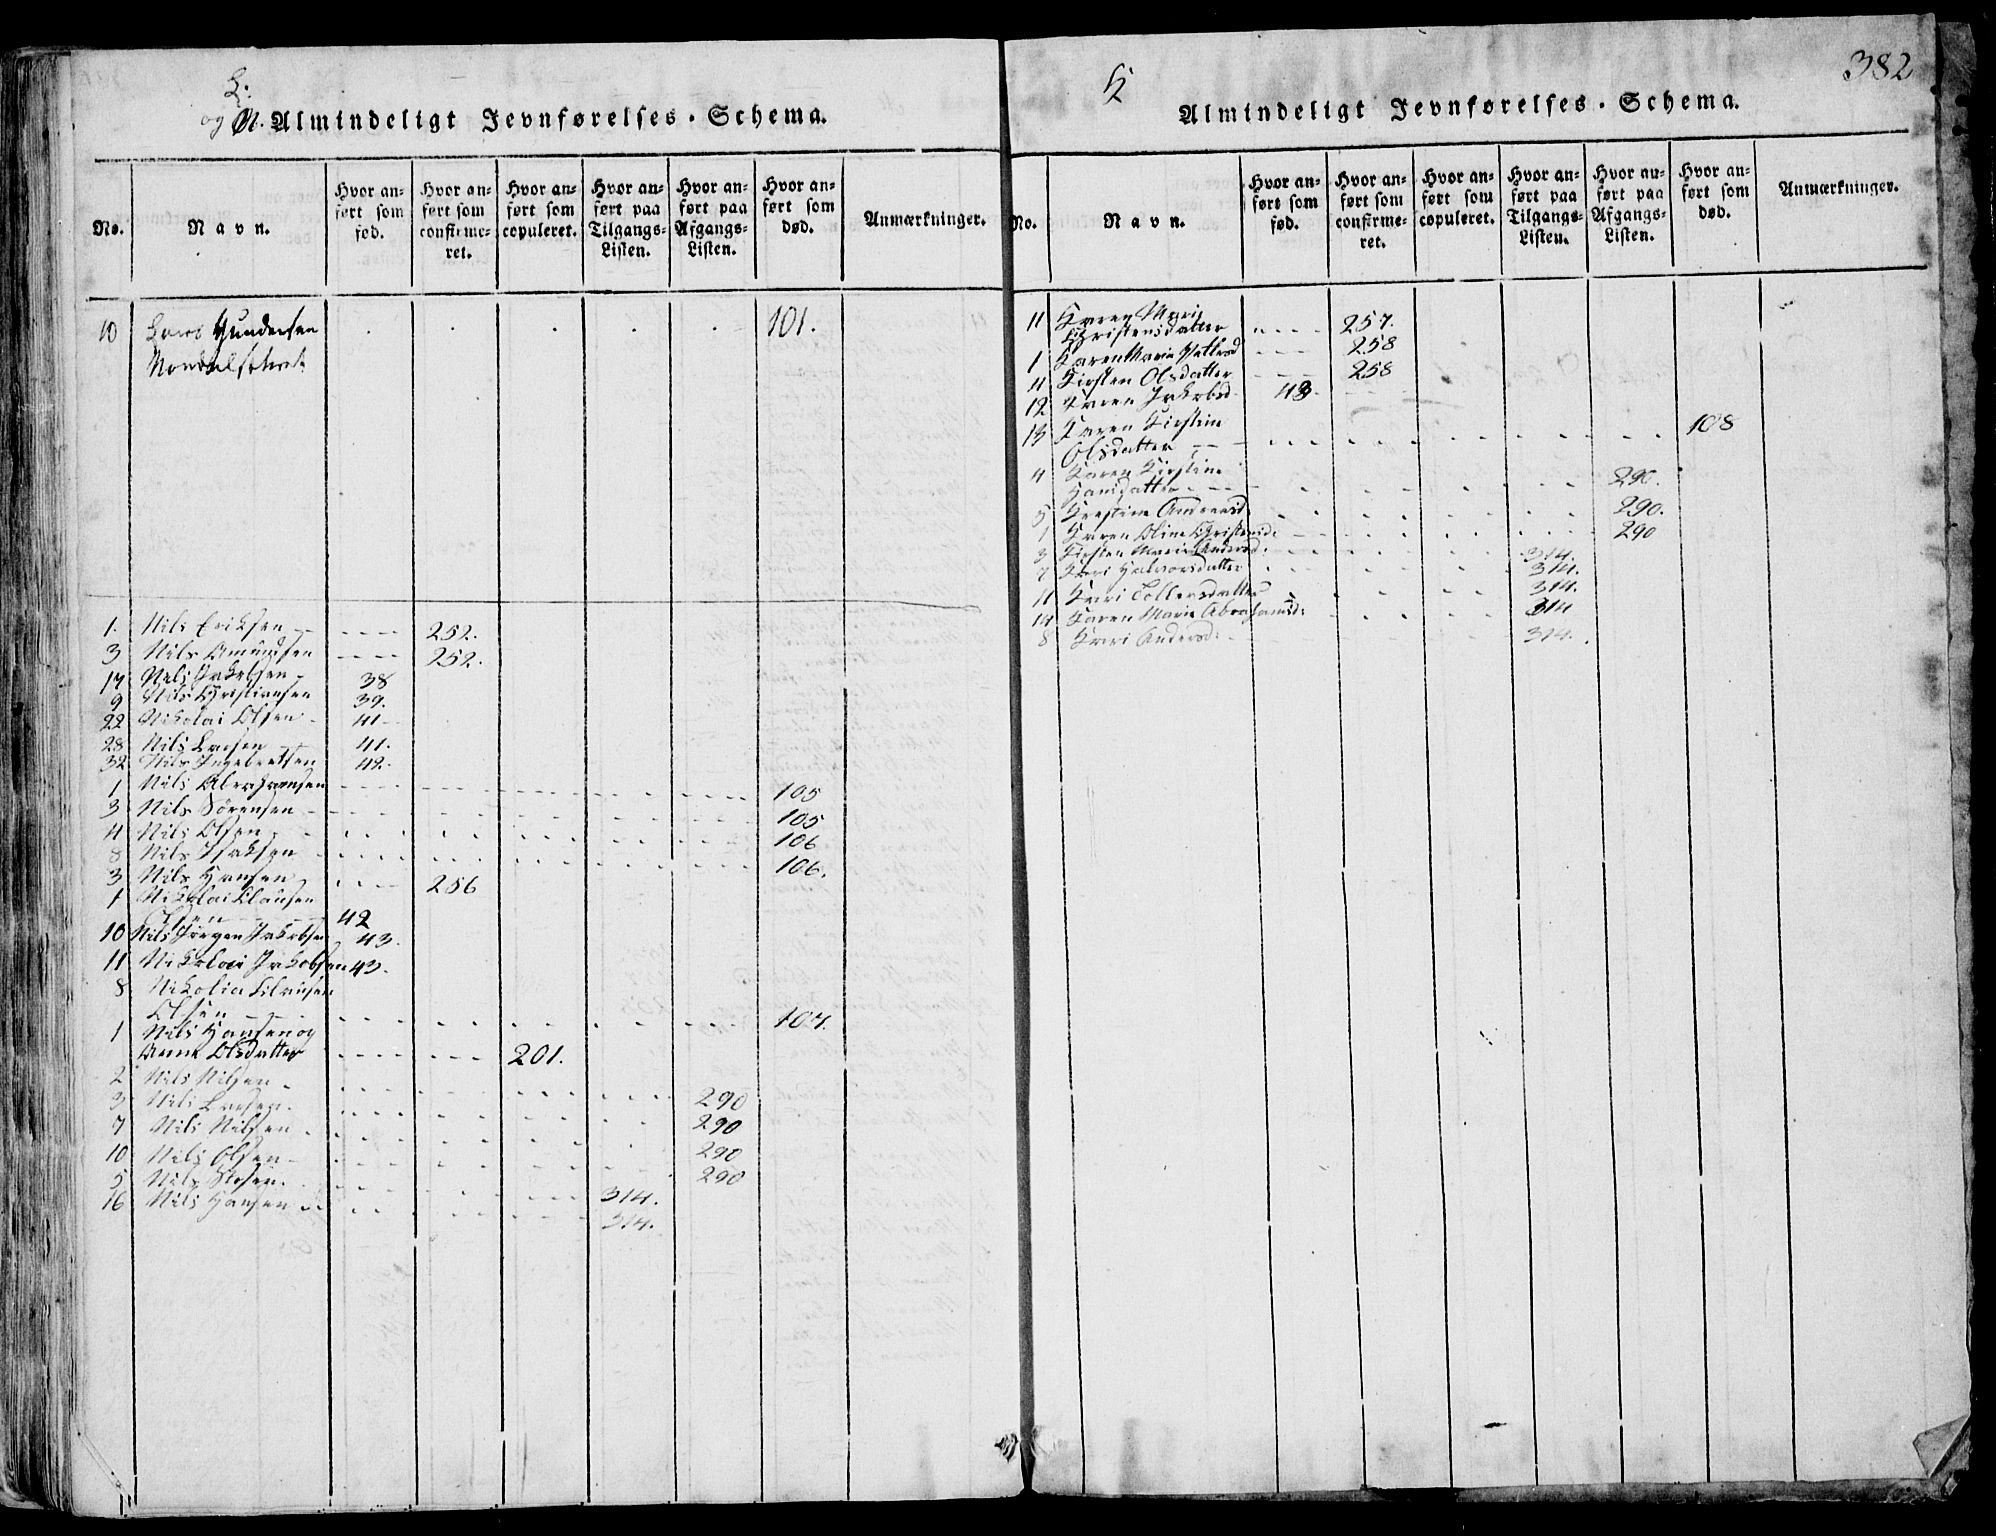 L.
og N. Almindeligt Jevnførelses-Schema.
No. Navn. Hvor anført som fød. Hvor anført som confirmeret. Hvor anført som copuleret. Hvor anført paa Tilgangs-Listen. Hvor anført paa Afgangs-Listen. Hvor anført som død. Anmærkninger.
10 Lars Gundersen 101.
1. Nils Eriksen 252.
3 Nils Amundsen 252.
17 Nils Jakobsen 38
9 Nils Christiansen 39.
22 Nikolai Olsen 41
28 Nils Larsen 41.
32 Nils Ingebretsen 42.
1 Nils Abrahamsen 105
3 Nils Sørensen 105
4 Nils Olsen 106
8 Nils Isaksen 106.
3 Nils Hansen 256
1 Nikolai Clausen
Olsen 42
10 Nils Jørgen Jakobsen 43.
11 Nikolai Jakobsen 43.
8 Nikolia
Olsen 107.
1 Nils Hansen og
Anne Olsdatter 201.
2 Nils Nilsen 290
3 Nils Larsen 290
7 Nils Nilsen 290
10 Nils Olsen 290
5 Nils 314.
16 Nils Hansen 314.
K 382
Almindeligt Jevnførelses-Schema.
No. Navn. Hvor anført som fød. Hvor anført som confirmeret. Hvor anført som copuleret. Hvor anført paa Tilgangs-Listen. Hvor anført paa Afgangs-Listen. Hvor anført som død. Anmærkninger.
11 Karen Marie
Christensdatter 257.
1 Karen Marie 258
4 Kirsten Olsdatter 258
12 Karen Jakobsd 43.
13 Karen Kirstine
Olsdatter 108
4 Karen Kirstine
Hansdatter 290.
5 Kirstine Andersd. 290.
1 Karen Oline Christensd. 290
3 Kirsten Marie Andersd. 314.
7 Kari Halvorsdatter 314.
11 Kari Tollefsdatter 314.
14 Karen Marie Abrahamsd: 314
8 Kari Andersd: 314.